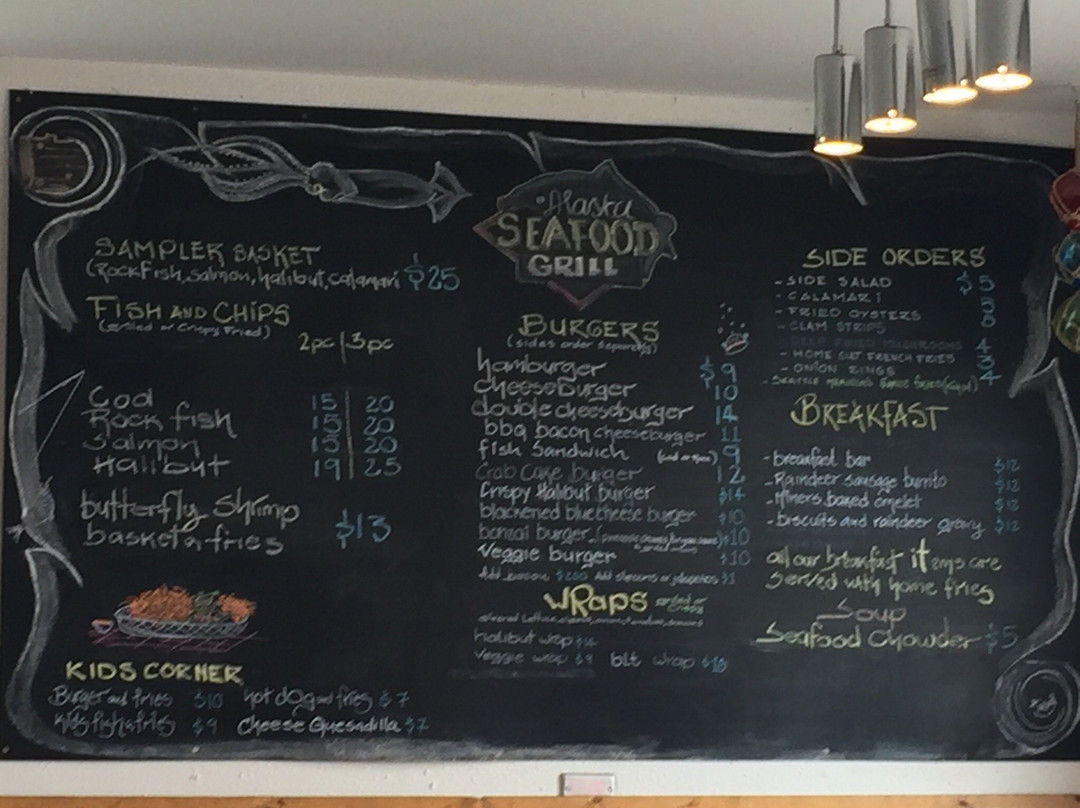 Alaska
SEAFOOD
GRILL
SAMPLER BASKET
(Rockfish, salmon, halibut, calamari $25
FISH AND CHIPS
(grilled or Crispy Fried)
2pc | 3pc
Cod 15 | 20
Rock fish 15 | 20
Salmon 15 | 20
Halibut 19 | 25
butterfly Shrimp
basket & fries $13
KIDS CORNER
Burger and fries $10 hot dog and fries $7
Kids fish & fries $9 Cheese Quesadilla $7
BURGERS
(sides order separately)
hamburger $9
cheeseburger 10
double cheeseburger 14
bbq bacon cheeseburger 11
fish Sandwich 9
Crab Cake burger 12
Crispy Halibut burger $14
blackened bluecheese burger $10
bonzai burger $10
Veggie burger $10
Add bacon Add shrooms or jalapeños $1
WRaps
halibut wrap $14
Veggie wrap $9 blt wrap
SIDE ORDERS
- SIDE SALAD $5
- CALAMARI
- FRIED OYSTERS
- CLAM STRIPS
DEEP FRIED MUSHROOMS 4
- HOME CUT FRENCH FRIES 3
- ONION RINGS 4
BREAKFAST
- breakfast bar $12
- Raindeer sausage burrito $12
- Miners baked omelet $12
- biscuits and raindeer gravy $12
all our breakfast items are
served with home fries
Soup
Seafood Chowder $5